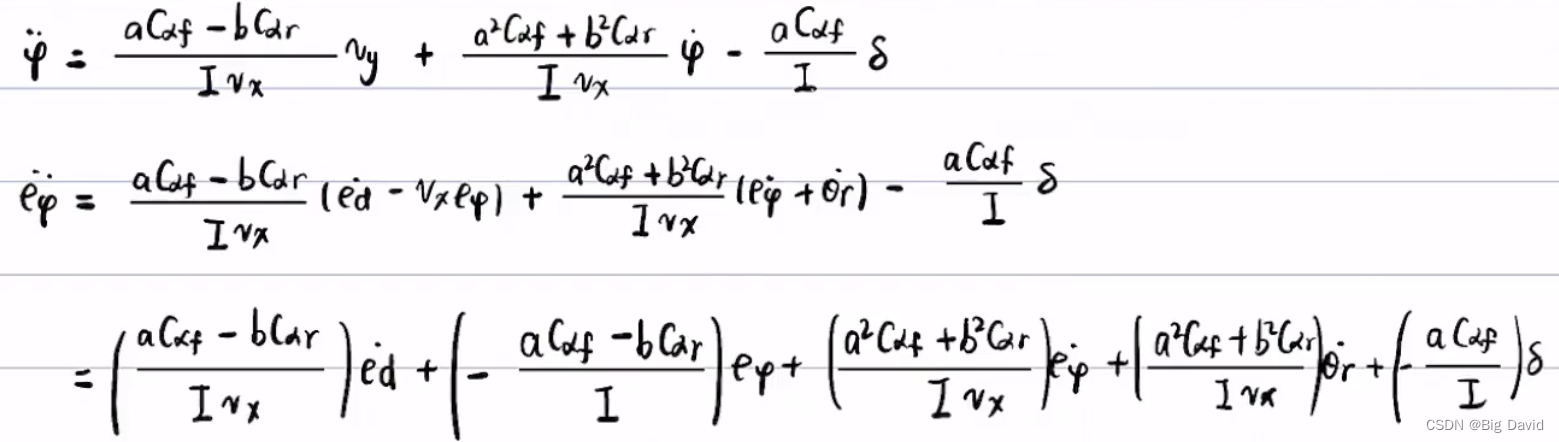 φ̈ = (aCαf − bCαr)/(I vx) vy + (a²Cαf + b²Cαr)/(I vx) φ̇ − (aCαf)/I δ
ëφ = (aCαf − bCαr)/(I vx) (ėd − vx eφ) + (a²Cαf + b²Cαr)/(I vx) (ėφ + θ̇r) − (aCαf)/I δ
= ((aCαf − bCαr)/(I vx)) ėd + (− (aCαf − bCαr)/I) eφ + ((a²Cαf + b²Cαr)/(I vx)) ėφ + ((a²Cαf + b²Cαr)/(I vx)) θ̇r + (− (aCαf)/I) δ
CSDN @Big David